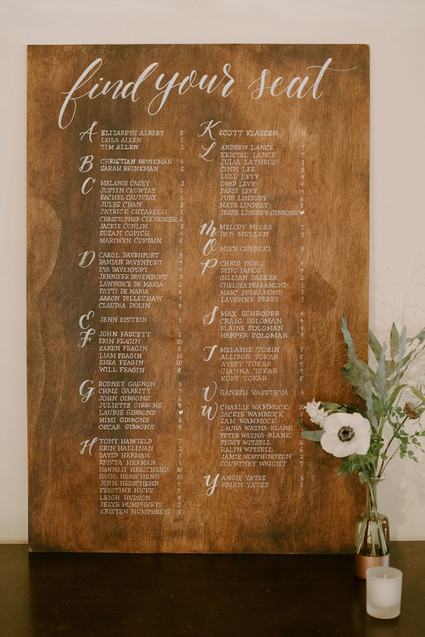 find your seat
A ELIZABETH ALBERT
LEILA ALLEN
TIM ALLEN
B CHRISTIAN BRINKMAN
SARAH BRINKMAN
C MELANIE CASEY
JUSTIN CAUNTAY
RACHEL CAUNTAY
JULES CHAN
PATRICK CICIARELLI
CHRISTOPHER CLEVENGER
JACKIE CONLIN
SUSAN COPICH
MARILYN CURTAIN
D CAROL DAVENPORT
DAMIAN DAVENPORT
EVA DAVENPORT
JENNIFER DAVENPORT
LAWRENCE DE MARIA
PATTI DE MARIA
AARON DILLESHAW
CLAUDIA DOLIN
E JENN EPSTEIN
F JOHN FAUCETT
ERIN FEAGIN 10
KAREN FEAGIN
LIAM FEAGIN 10
SHEA FEAGIN 10
WILL FEAGIN
G RODNEY GAGNON
CHRIS GARRITY
JOHN GIBBONS
JULIETTE GIBBONS
LAURIE GIBBONS ♥
MIMI GIBBONS
OSCAR GIBBONS
H TONY HADFIELD
ERIN HALLINAN
DAVID HERMAN
KRISTA HERMAN
HANNAH HERSCHEND 10
HUGO HERSCHEND
JOHN HERSCHEND
KRISTINE HICKS
LEIGH HUDSON
JESSE HUMPHREYS
KRISTEN HUMPHREYS
K SCOTT KLASSEN
L ANDREW LANCE
KRISTAL LANCE
JULIA LATHROP
CINDI LEE
LULU LEVY
OREP LEVY
PARIS LEVY
JURI LINDSEY
NATE LINDSEY
JESSE LINDSEY-GIBBONS ♥
M MELODY MOORE
DAN MULLEN
O MIKE ODYNSKI
P CHRIS PANCE
DINO PANOS
GILLIAN PARKER
CHELSEA PERSAMOND
MARC PERSAMOND
LAVONNE PERRY
S MAX SCHRODER
CRAIG SOLOMAN
ELAINE SOLOMAN
HARPER SOLOMAN
T MELANIE TOBIN
ALLISON TOKAR
AVERY TOKAR
GIANNA TOKAR
KORY TOKAR
V GANESH VASUDEVA
W CHARLIE WAMMOCK 10
JACKIE WAMMOCK
SAM WAMMOCK
LAURA WAYNE-BLANK
PETER WAYNE-BLANK
PEGGY WITZELL
RALPH WITZELL
JAMIE WORTHINGTON
COURTNEY WRIGHT
Y ANGIE YATES
BRIAN YATES